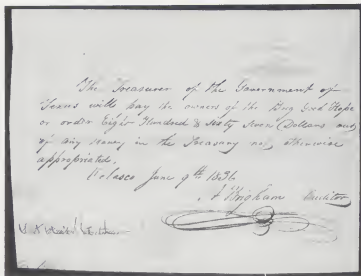 The Treasurer of the Government of
Texas will pay the owners of the Brig Good Hope
or order Eight Hundred & Sixty Seven Dollars out
of any money in the Treasury not otherwise
appropriated.
Velasco June 9th 1836
Brigham Auditor